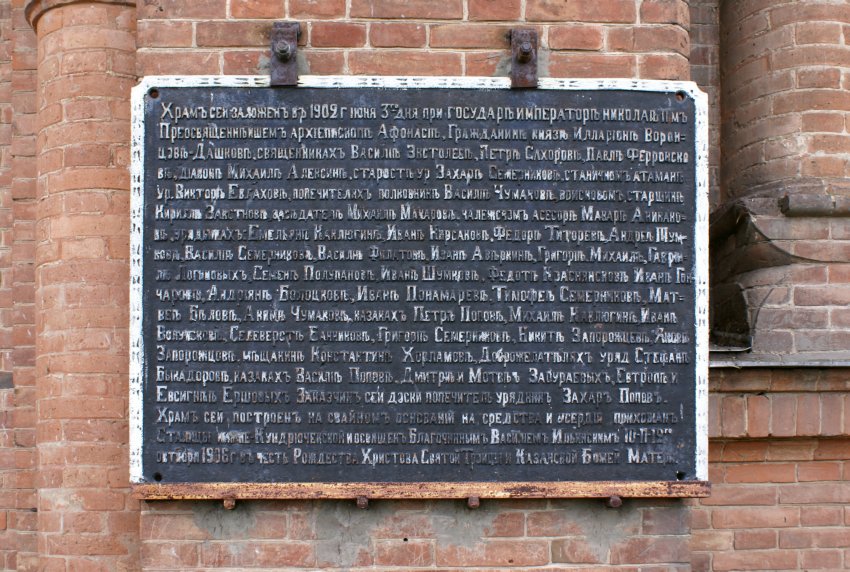 Храмъ сей заложенъ въ 1902 г июня 3го дня при ГОСУДАРѢ ИМПЕРАТОРѢ НИКОЛАѢ II мъ
Преосвященнѣйшемъ архіепископѣ Афонасѣ, Гражданинѣ князѣ Илларіонѣ Ворон
цовѣ-Дашковѣ, священникахъ Василіѣ Петрѣ Сахоровѣ, Павлѣ Ферронско
вѣ, діаконѣ Михаилѣ Алексинѣ, старостѣ ур Захарѣ Семерниковѣ, станичномъ атаманѣ
ур. Викторѣ Евлаховѣ, попечителяхъ полковникѣ Василіѣ Чумаковѣ, войсковомъ, старшинѣ
Кирилѣ засѣдателѣ Михаилѣ Макаровѣ, асесорѣ Макарѣ Аникано
вѣ, урядникахъ Емельянѣ Каклюгинѣ, Иванѣ Кирсановѣ, Федорѣ Титоревѣ, Андреѣ Шум
ковѣ, Василіѣ Семерниковѣ, Василіѣ Филатовѣ, Иванѣ Авѣркинѣ, Григоріѣ Михаилѣ, Гаври
лѣ Логвиновыхъ, Семенѣ Полупановѣ, Иванѣ Шумковѣ, Федотѣ Краснянсковѣ Иванѣ Гон
чаровѣ, Андріянѣ Болоцковѣ, Иванѣ Понамаревѣ, Тимофеѣ Семерниковѣ, Мат
веѣ Бѣловѣ, Акимѣ Чумаковѣ, казакахъ Петрѣ Поповѣ, Михаилѣ Каклюгинѣ, Иванѣ
Селеверстѣ Григоріѣ Семерниковѣ, Никитѣ Запорожцевѣ,
Запорожцовѣ, мѣщанинѣ Константинѣ Хорламовѣ, Доброжелателяхъ уряд Стефанѣ
Быкадоровѣ, казакахъ Василіѣ Поповѣ, Дмитріѣ и Мотвеѣ Забураевыхъ, Евтропѣ и
Евсигнѣѣ Ершовыхъ Заказчикъ сей дзски попечитель урядникъ Захаръ Поповъ.
Храмъ сей, построенъ на свайномъ основаній на средства и усердія прихожанъ
Станицы нижне-Кундрюческой и освященъ Благочиннымъ Василіемъ Ильинскимъ 10-11-12го
октября 1906 г въ честь Рождества Христова Святой Троицы и Казанской Божей Матери.